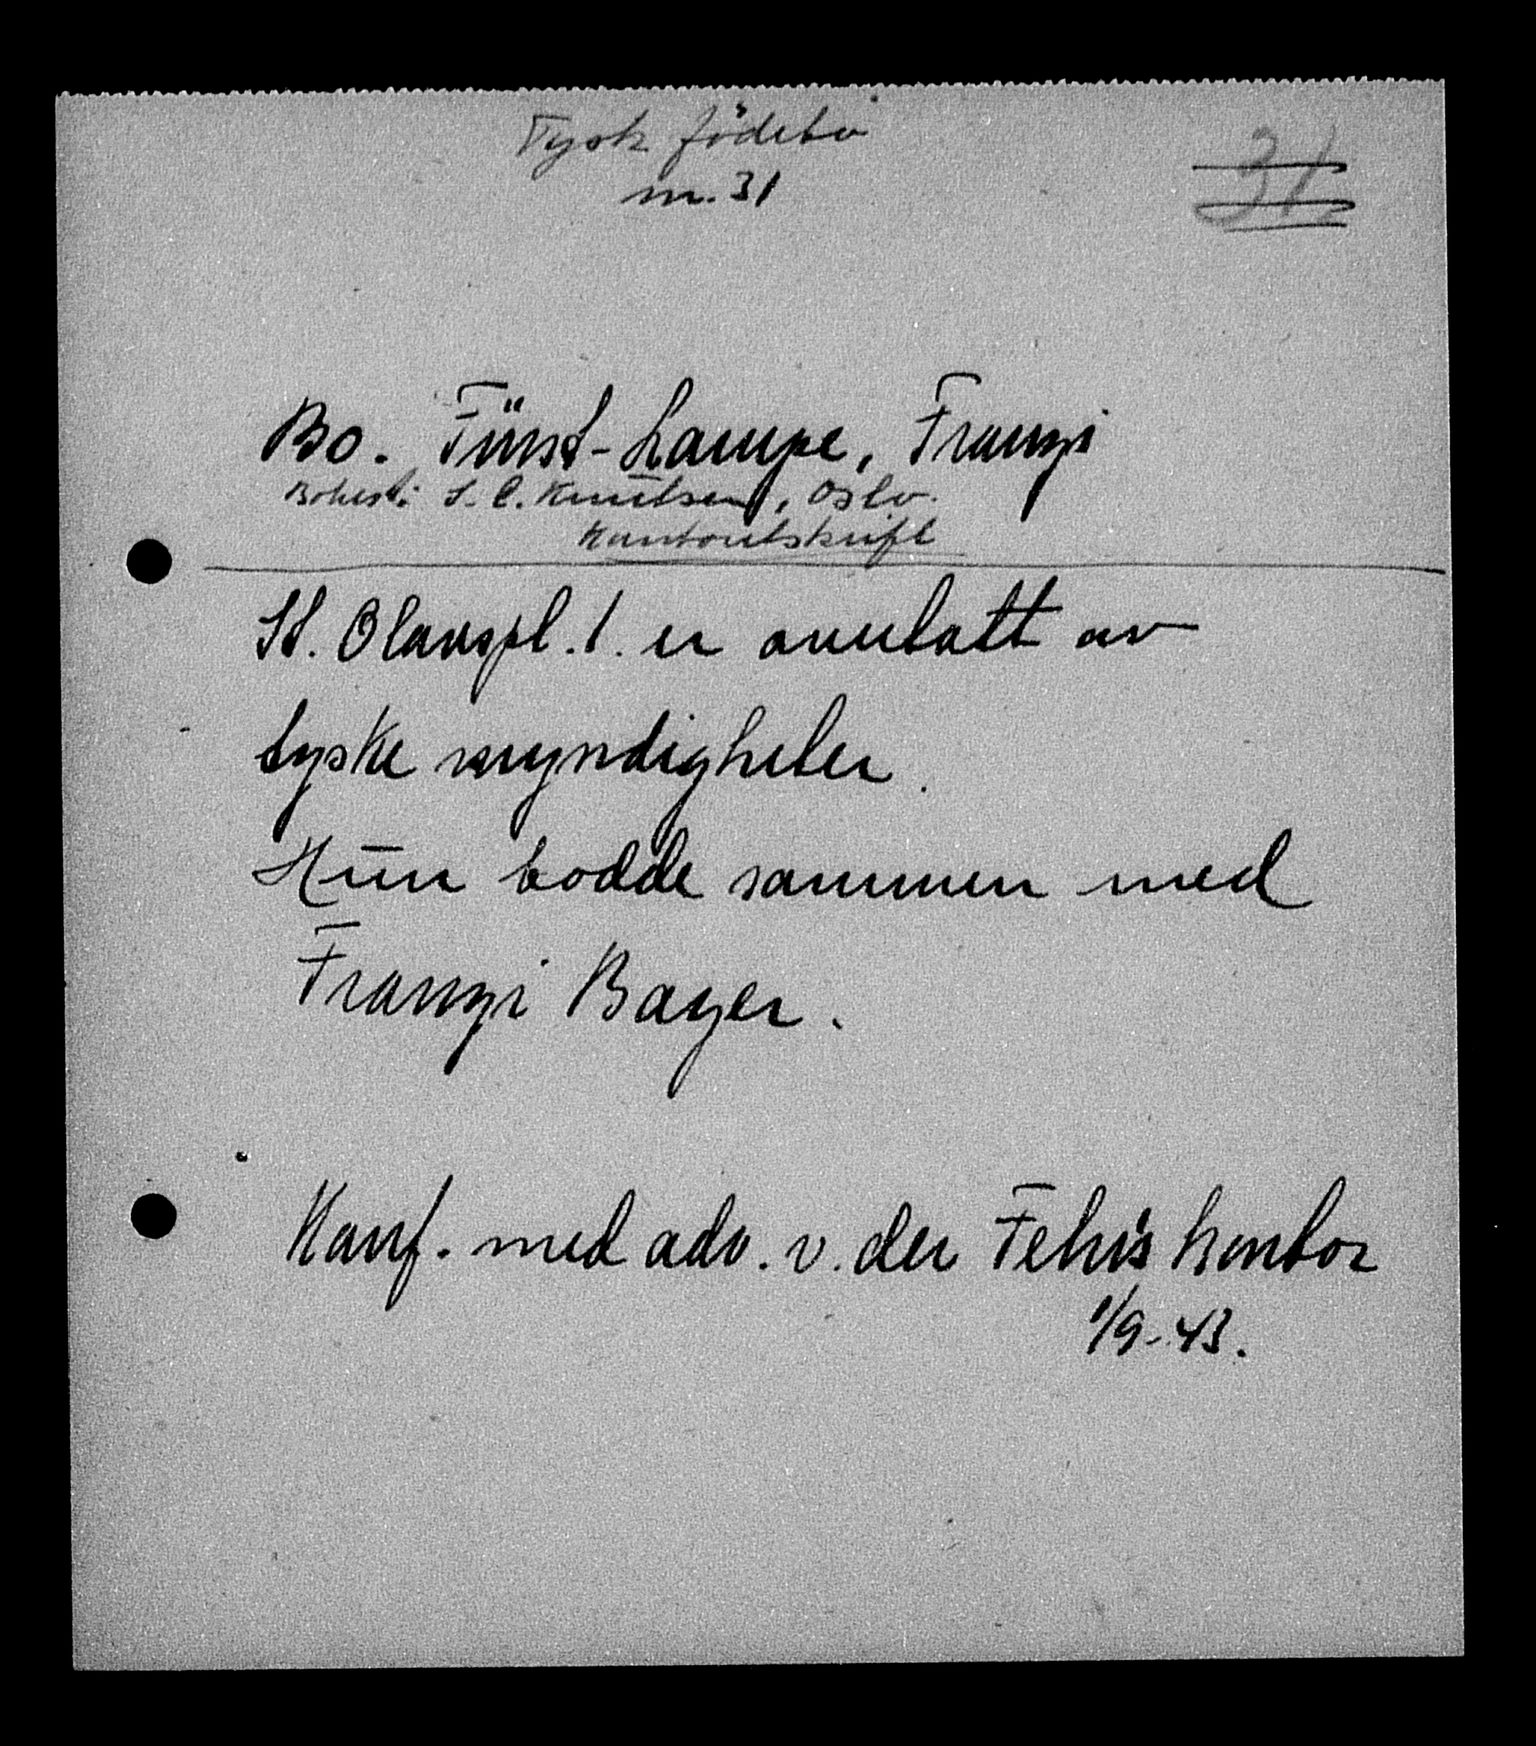 Tysk jödebo
nr. 31
31.
Bo. Fürst-Lampe, Franzi
Bobest: S. C. Knutsen, Oslo.
Kontoutskrift
St. Olavspl. 1. er overtatt av
tyske myndigheter.
Hun bodde sammen med
Franzi Bayer.
Konf. med adv. v. der Fehrs kontor
1/9-43.